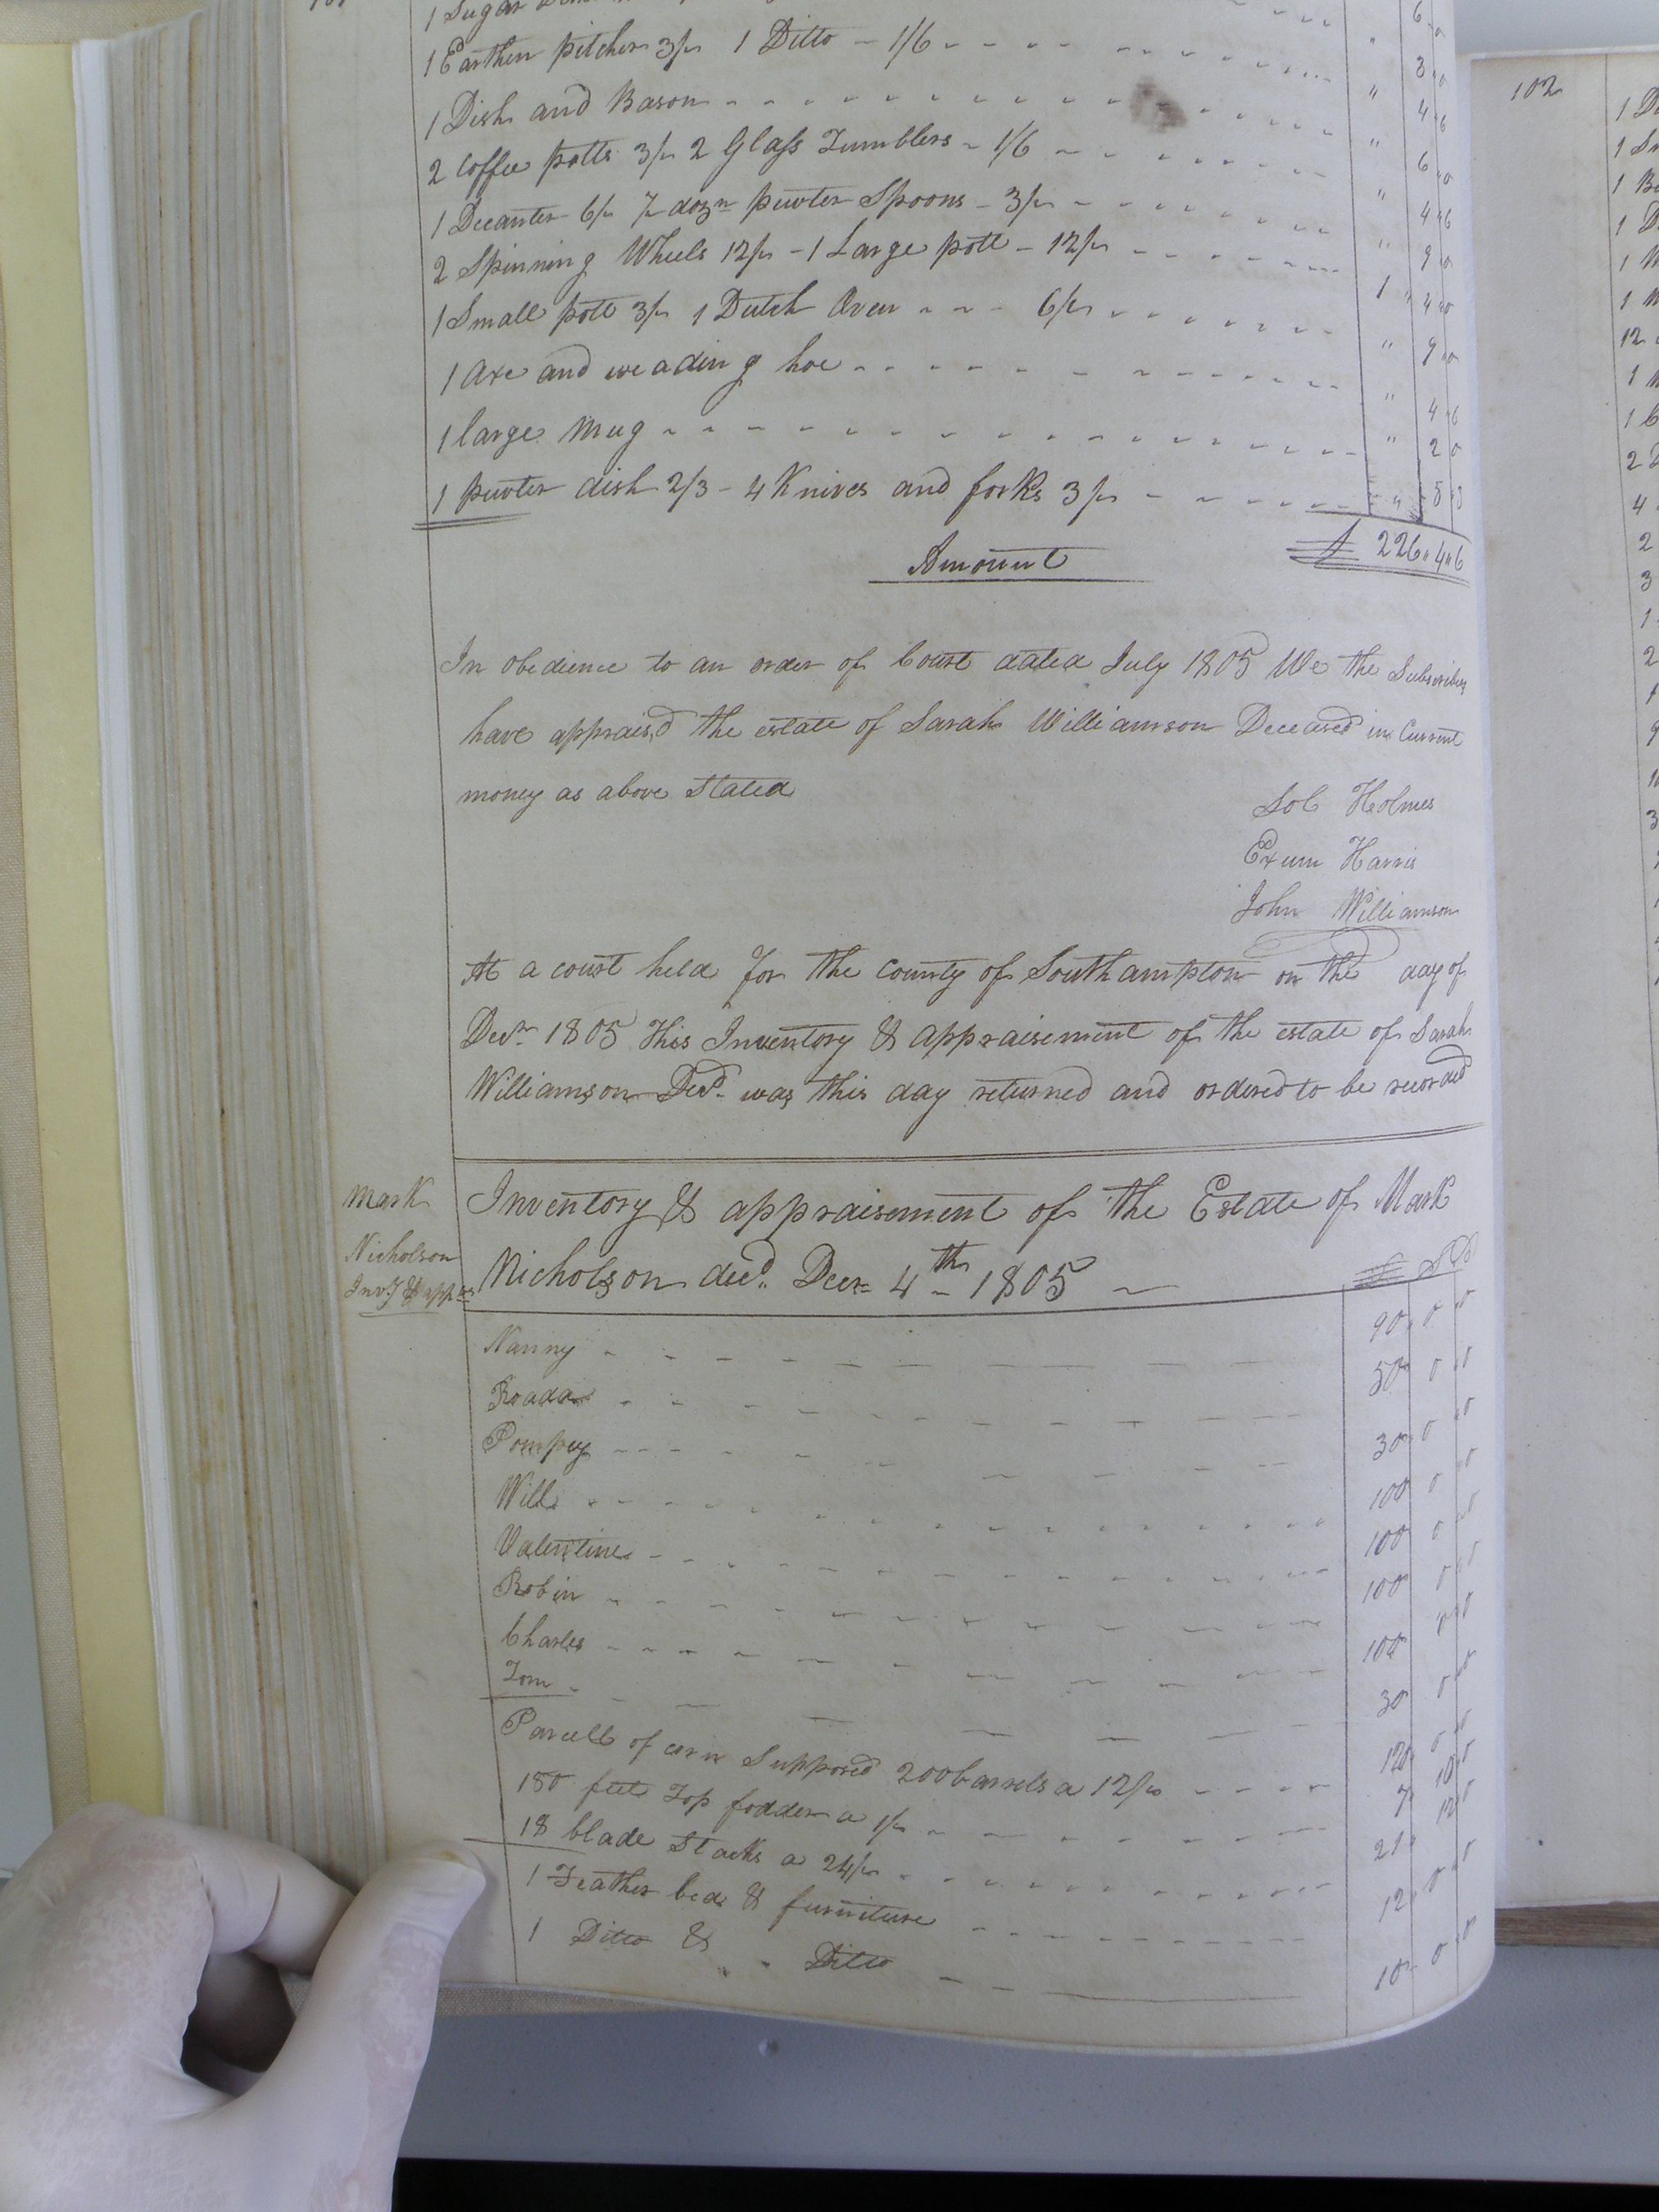 1 Sugar
6 " 0
1 Earthen pitcher 3/- 1 Ditto - 1/6 " 3 " 0
1 Dish and Bason " 4 " 6
2 Coffee potts 3/- 2 Glass Tumblers - 1/6 " 6 " 0
1 Decanter 6/- 7 dozn pewter Spoons - 3/- " 4 " 6
2 Spinning Wheels 12/- - 1 Large pott - 12/- " 9 " 0
1 Small pott 3/- 1 Dutch Oven - - - 6/- 1 " 4 " 0
1 axe and weading hoe " 9 " 0
" 4 " 6
1 large mug " 2 0
1 pewter dish 2/3 - 4 Knives and forks 3/- " 5 " 3
Amount £ 226 " 4 " 6
In obedience to an order of Court dated July 1805 We the Subscribers
have apprais'd the estate of Sarah Williamson Deceased in Current
money as above Stated
Sol Holmes
Exum Harris
John Williamson
At a court held for the County of Southampton on the day of
Decr 1805 This Inventory & appraisement of the estate of Sarah
Williamson Decd. was this day returned and ordered to be recorded
Mark
Nicholson
Invy & apps
Inventory & appraisement of the Estate of Mark
Nicholson decd. Decr 4th 1805 £ S D
Nanny 90 " 0 " 0
Roada 50 " 0 " 0
Pompey 30 " 0 " 0
Will 100 " 0 " 0
Valentine 100 " 0 " 0
Robin 100 " 0 " 0
Charles 100 " 0 " 0
Tom 30 " 0 " 0
Parcell of corn Supposed 200 barrels a 12/- 120 " 0 " 0
150 feet Top fodder a 1/- 7 " 10 " 0
18 blade Stacks a 24/- 21 " 12 " 0
1 Feather bed & furniture 12 " 0 " 0
1 Ditto & Ditto 10 " 0 " 0
102